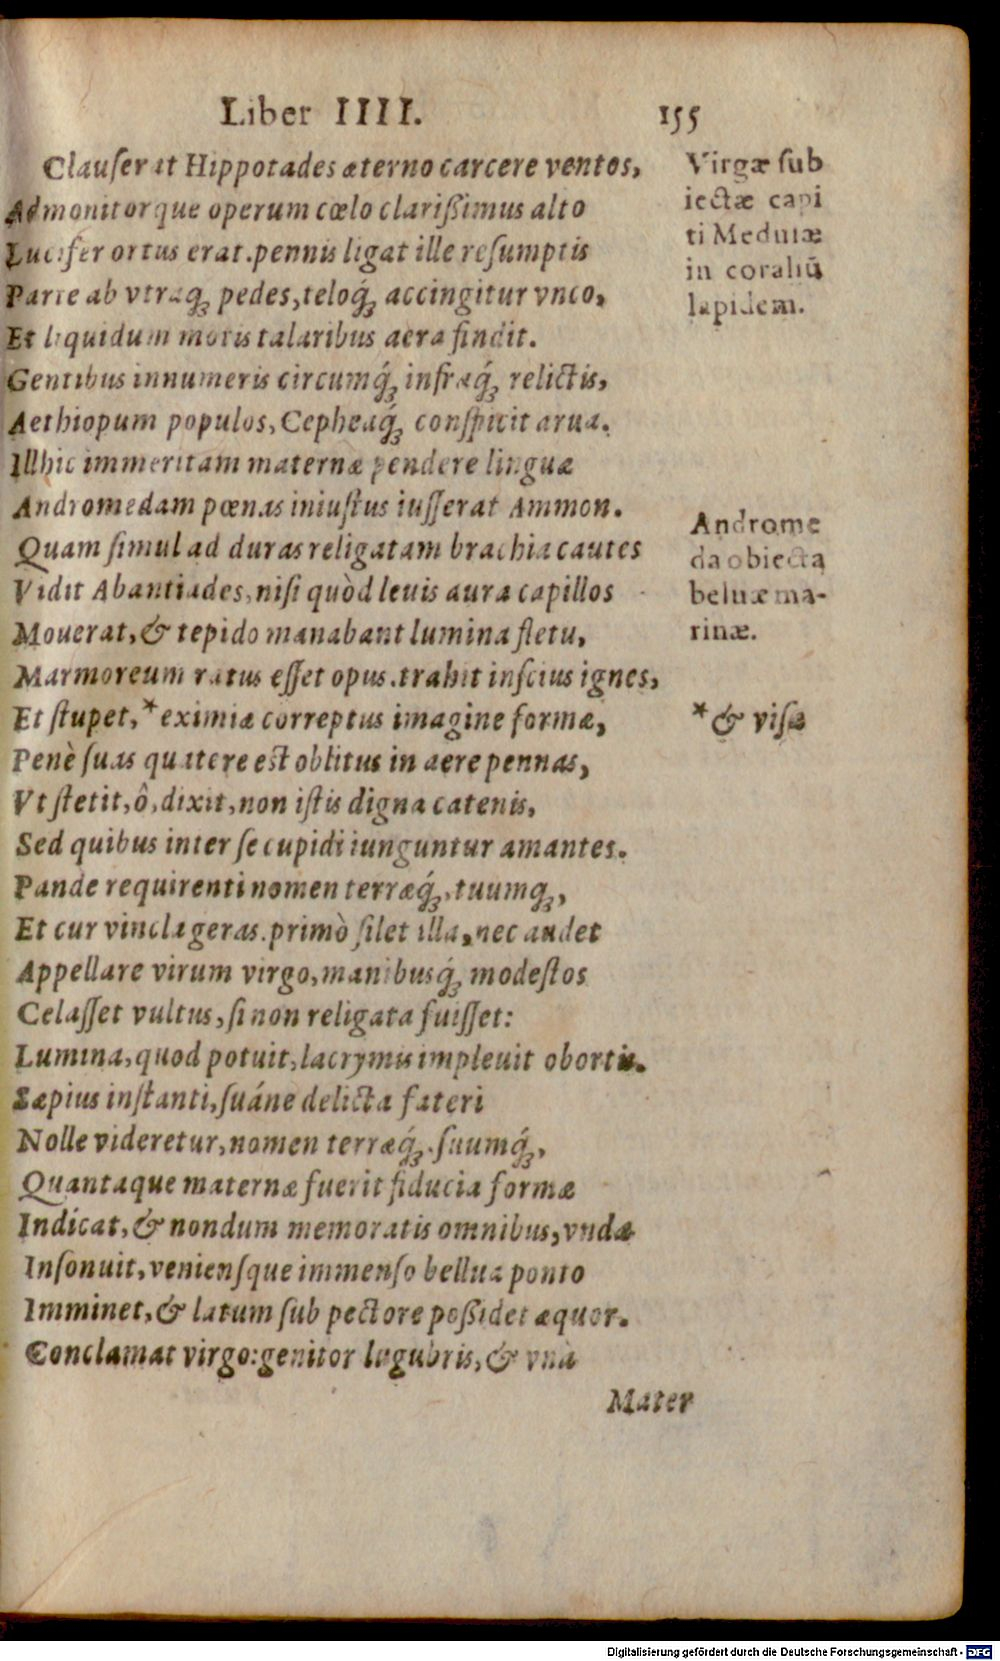 Liber IIII. 155
Clauserat Hippotades æterno carcere ventos,
Admonitorque operum cœlo clarißimus alto
Lucifer ortus erat. pennis ligat ille resumptis
Parte ab vtraq́ꝫ pedes, teloq́ꝫ accingitur vnco,
Et liquidum motis talaribus aera findit.
Gentibus innumeris circumq́ꝫ infraq́ꝫ relictis,
Aethiopum populos, Cepheaq́ꝫ conspicit arua.
Illhic immeritam maternæ pendere linguæ
Andromedam pœnas iniustus iusserat Ammon.
Quam simul ad duras religatam brachia cautes
Vidit Abantiades, nisi quòd leuis aura capillos
Mouerat, & tepido manabant lumina fletu,
Marmoreum ratus esset opus. trahit inscius ignes,
Et stupet, * eximiæ correptus imagine formæ,
Penè suas quatere est oblitus in aere pennas,
Vt stetit, ô, dixit, non istis digna catenis,
Sed quibus inter se cupidi iunguntur amantes.
Pande requirenti nomen terræq́ꝫ, tuumqꝫ,
Et cur vincla geras. primò silet illa, nec audet
Appellare virum virgo, manibusq́ꝫ modestos
Celasset vultus, si non religata fuisset:
Lumina, quod potuit, lacrymis impleuit obortis.
Sæpius instanti, suáne delicta fateri
Nolle videretur, nomen terræq́ꝫ. suumq́ꝫ,
Quantaque maternæ fuerit fiducia formæ
Indicat, & nondum memoratis omnibus, vndæ
Insonuit, veniensque immenso bellua ponto
Imminet, & latum sub pectore poßidet æquor.
Conclamat virgo: genitor lugubris, & vnà
Mater
Virgæ sub
iectæ capi
ti Medusæ
in coraliū
lapidem.
Androme
da obiecta
beluæ ma-
rinæ.
* & visæ
Digitalisierung gefördert durch die Deutsche Forschungsgemeinschaft - DFG